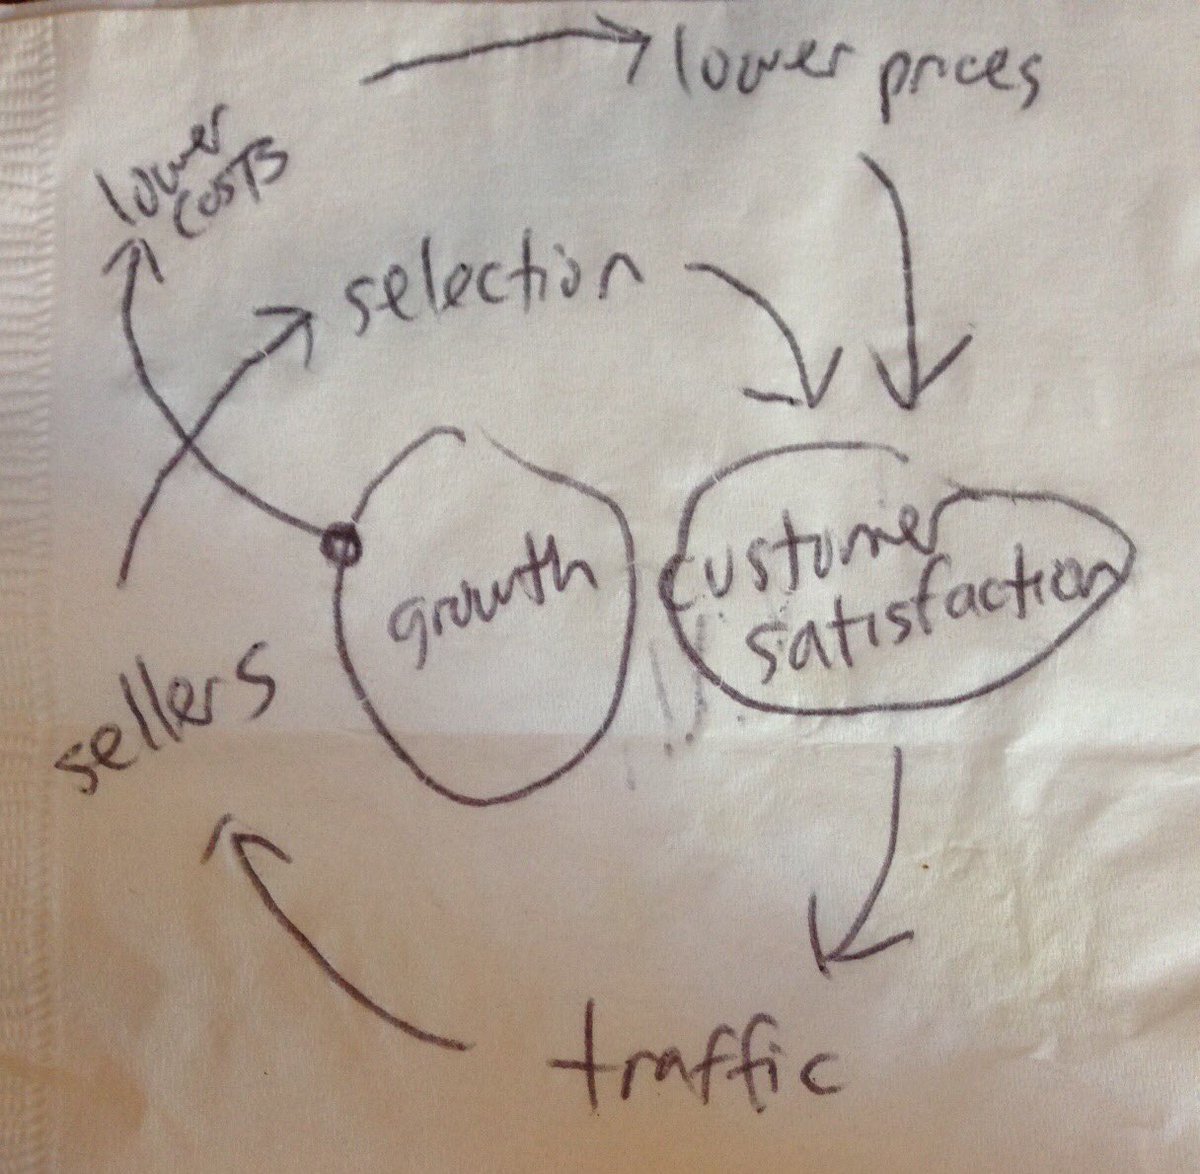 lower prices
lower
costs
selection
growth
customer
satisfaction
sellers
traffic